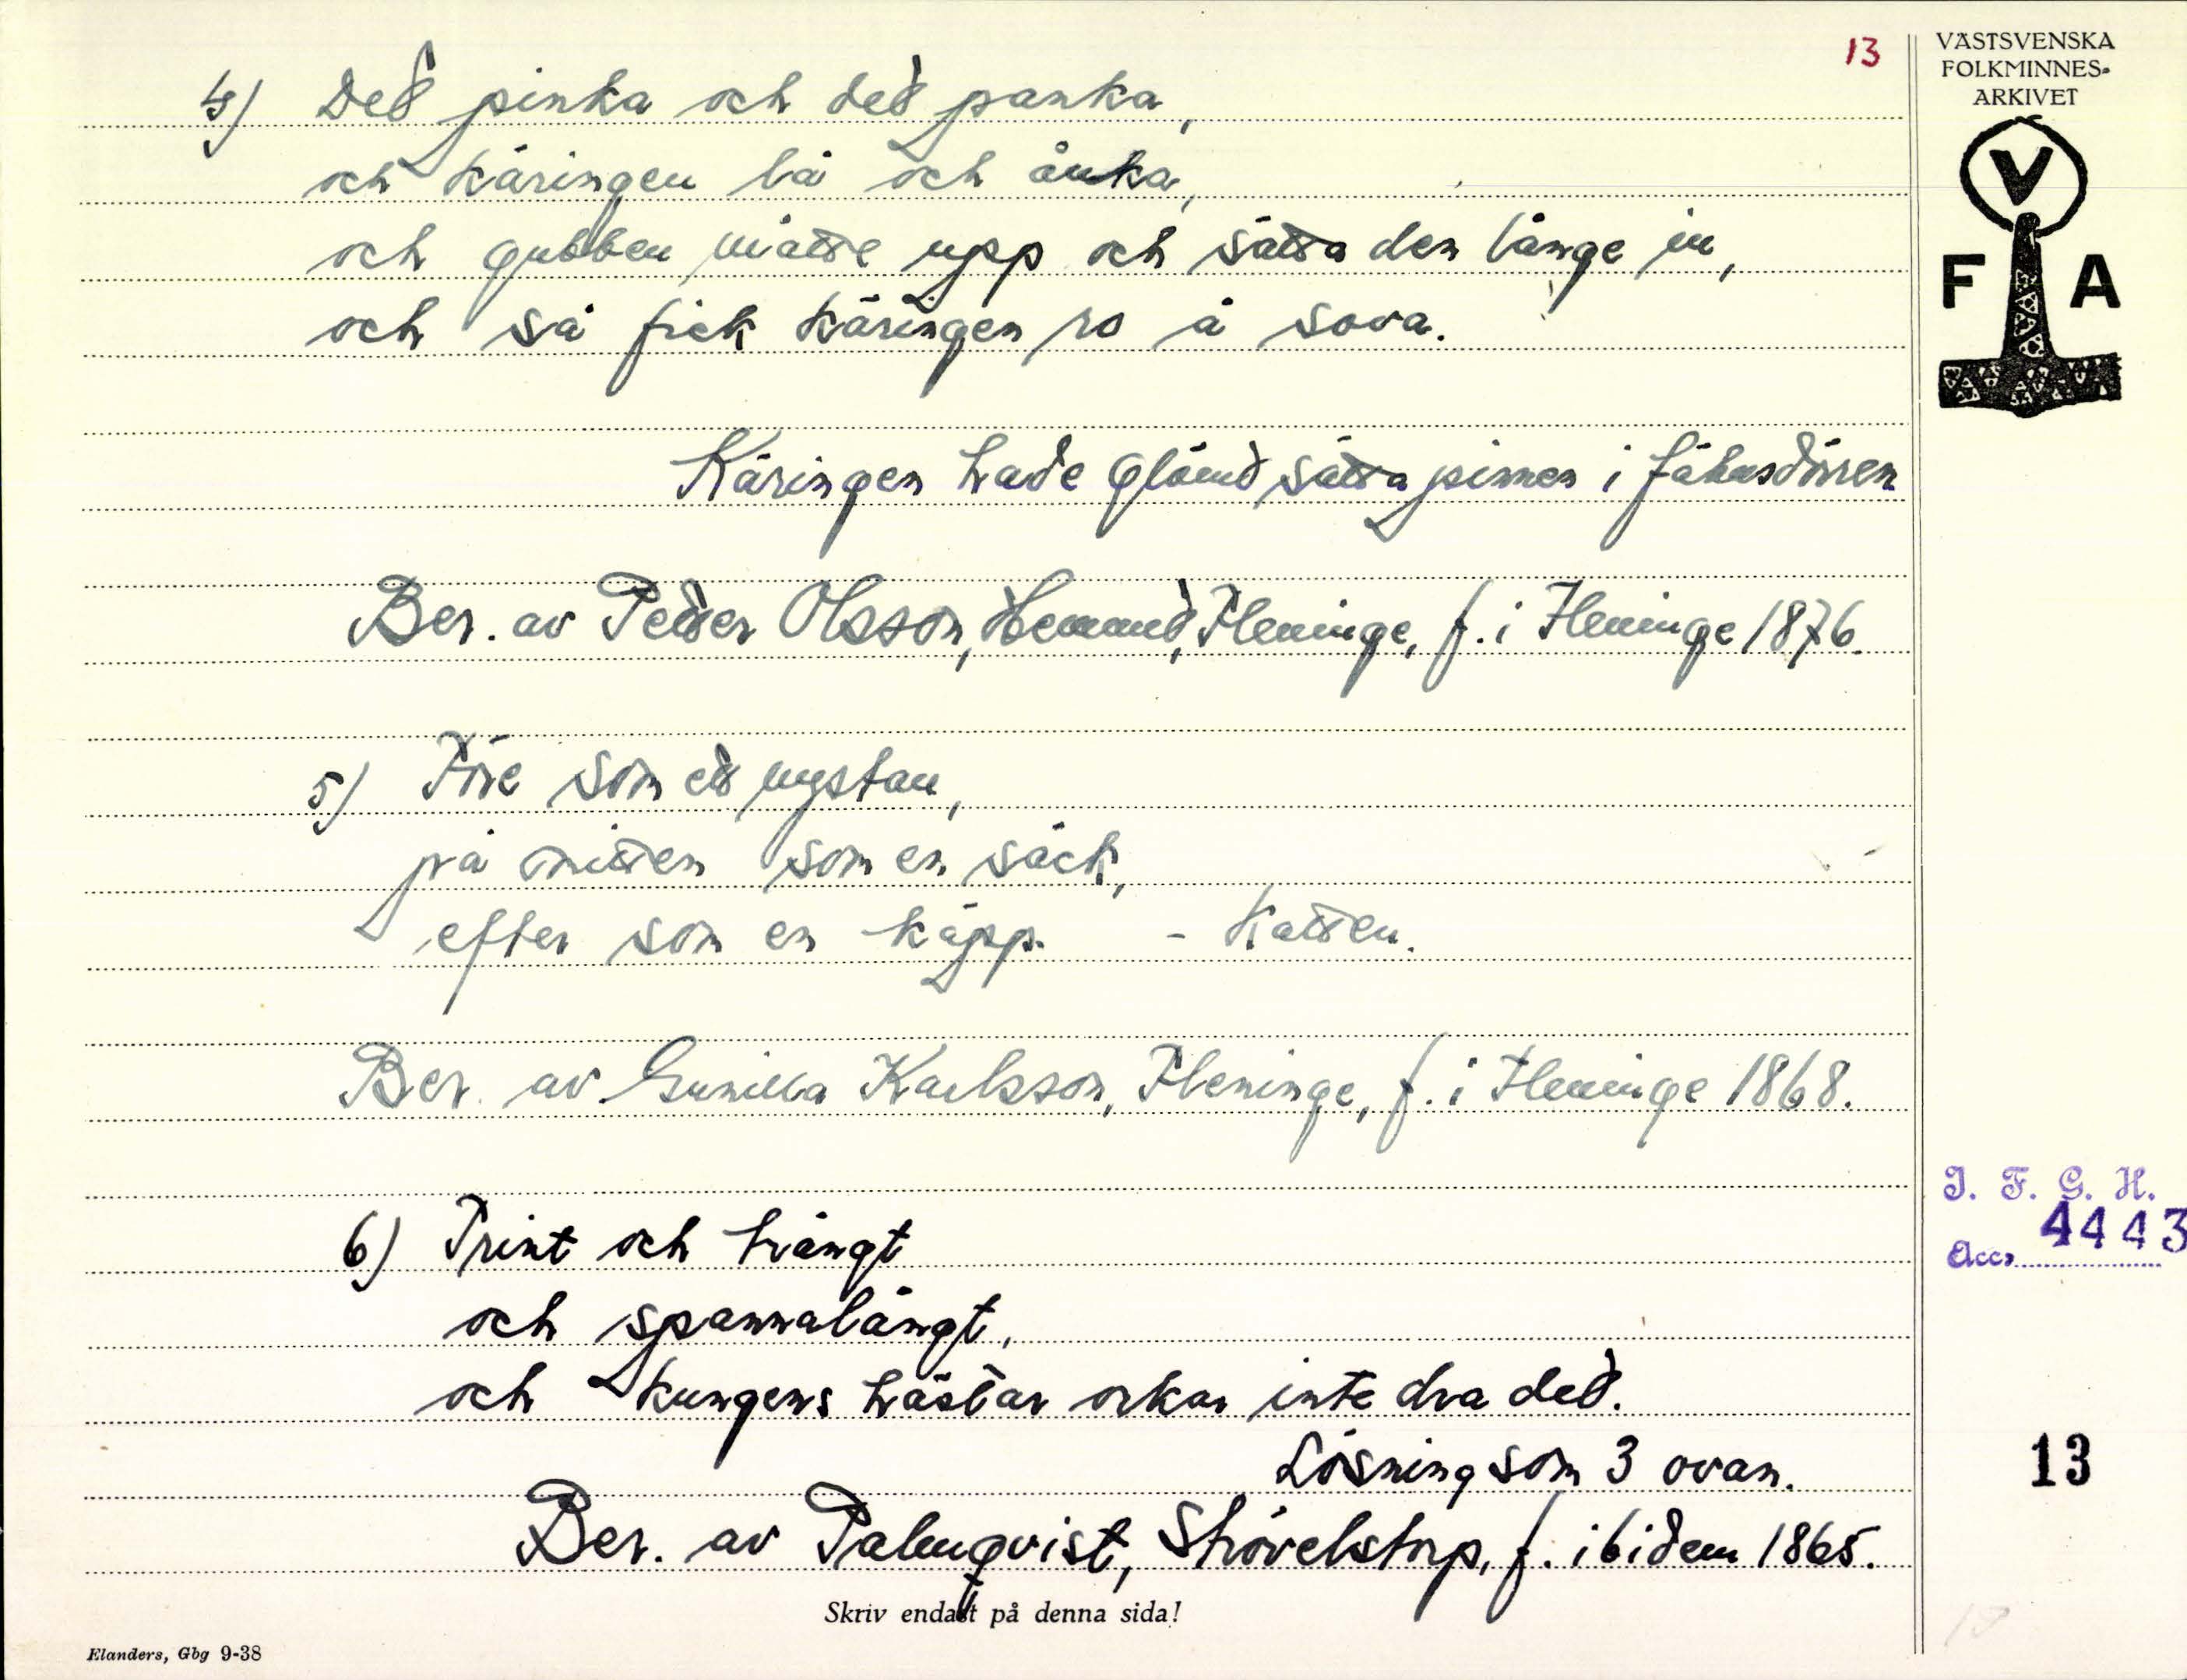 13
VÄSTSVENSKA
FOLKMINNES-
ARKIVET
V
F A
4) Det pinka och det panka,
och käringen lå och ånka,
och gubben måtte upp och sätta den långe in,
och så fick käringen ro å sova.
Käringen hade glömt sätta pinnen i fähusdörren
Ber. av Petter Olsson, Fleninge, f. i Fleninge 1876.
5) Före som ett nystan,
på mitten som en säck,
efter som en käpp. - Katten.
Ber. av Gunilla Karlsson, Fleninge, f. i Fleninge 1868.
6) Trint och trångt
och spannalångt,
och kungens hästar orkar inte dra det.
Lösning som 3 ovan.
Ber. av Palmqvist, Strövelstorp, f. ibidem 1865.
I. F. G. H.
Acc. 4443
13
Skriv endast på denna sida!
Elanders, Gbg 9-38